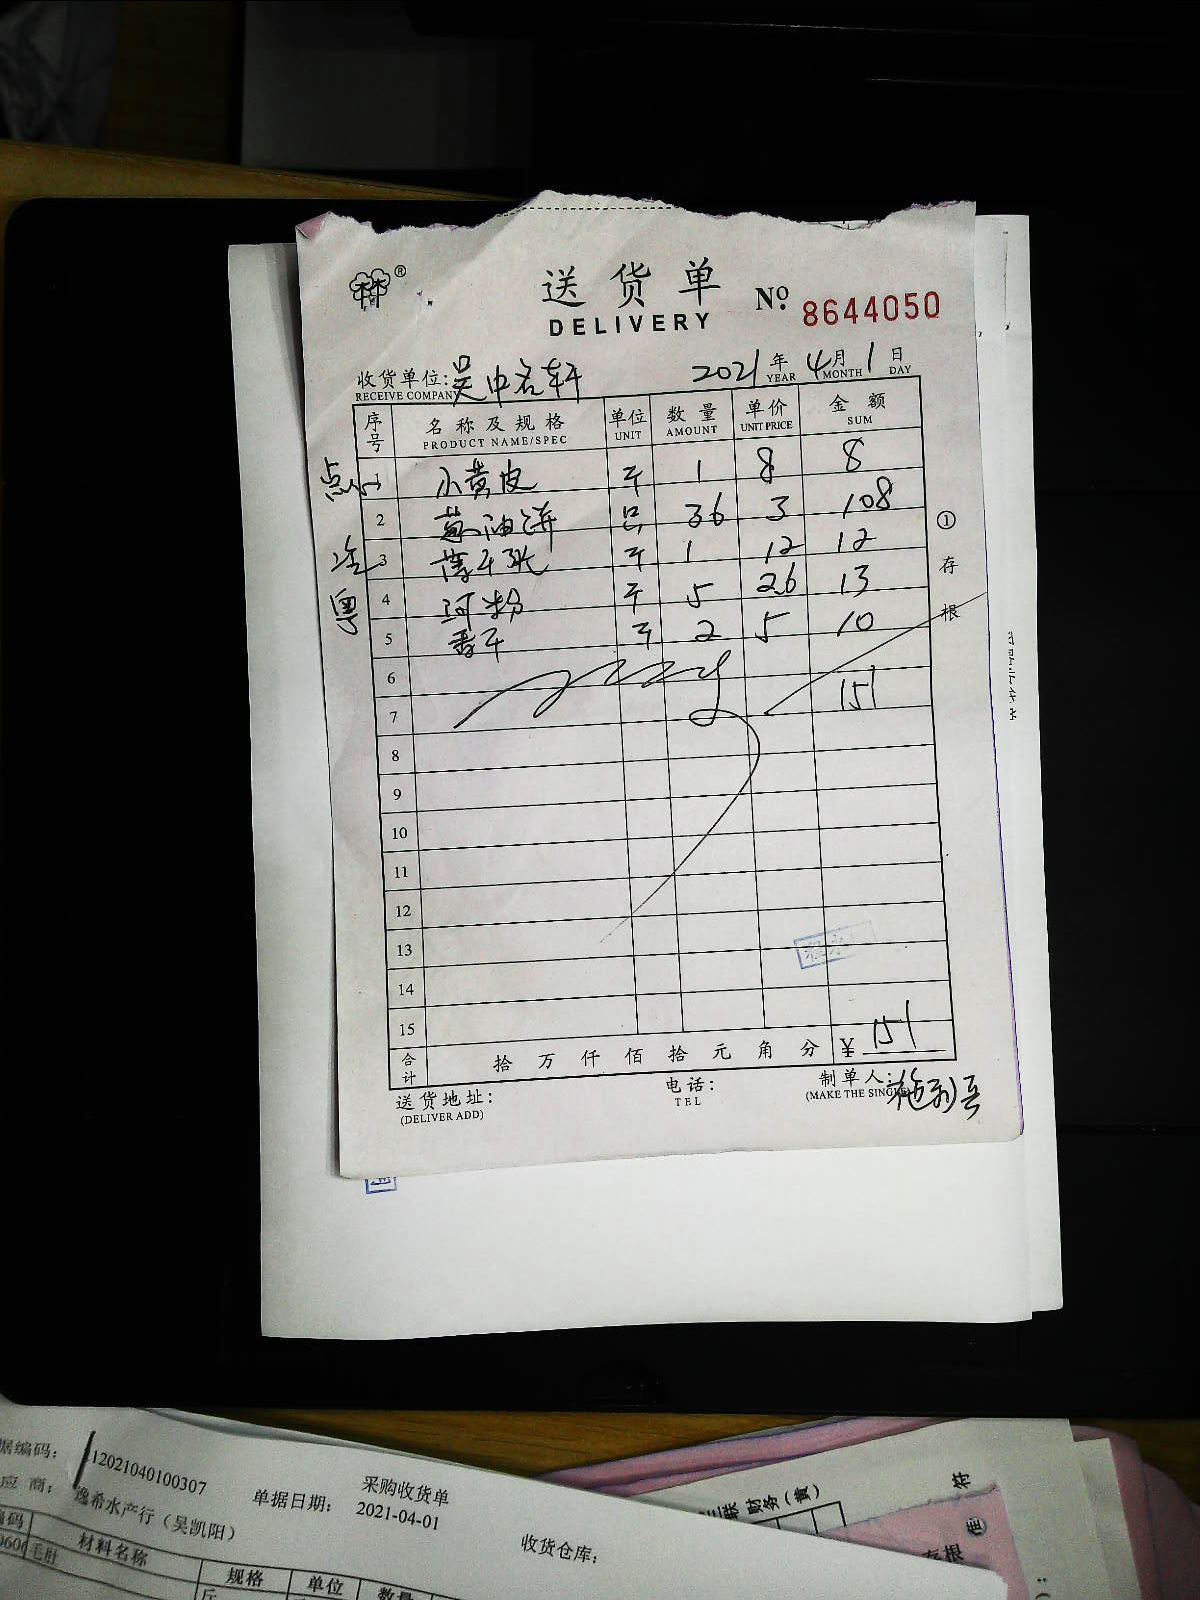 送货单
DELIVERY
№ 8644050
收货单位: 吴中名轩 2021年4月1日
RECEIVE COMPANY YEAR MONTH DAY
序号 名称及规格 单位 数量 单价 金额
PRODUCT NAME/SPEC UNIT AMOUNT UNIT PRICE SUM
点心 1 小黄皮 斤 1 8 8
2 葱油饼 只 36 3 108
3 薄千张 斤 1 12 12
粤 4 河粉 斤 5 2.6 13
5 香干 斤 2 5 10
6
7 151
8
9
10
11
12
13
14
15
合计 拾万仟佰拾元角分 ¥ 151
① 存根
送货地址: 电话: 制单人:
(DELIVER ADD) TEL (MAKE THE SINGLE)
据编码: 12021040100307
采购收货单
应商: 逸希水产行（吴凯阳） 单据日期: 2021-04-01 收货仓库:
编码 材料名称 规格 单位 数量
毛肚 斤
三联财务(黄)
存根